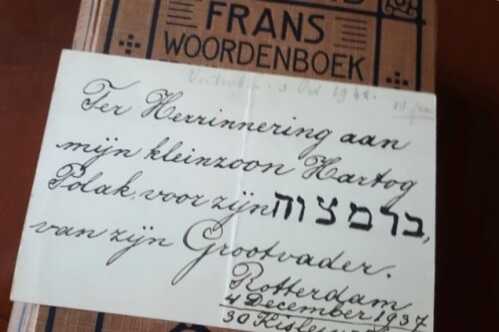 FRANS
WOORDENBOEK
Ter Herrinnering aan
mijn kleinzoon Hartog
Polak, voor zijn בר מצוה,
van zijn Grootvader.
Rotterdam
4 December 1937
30